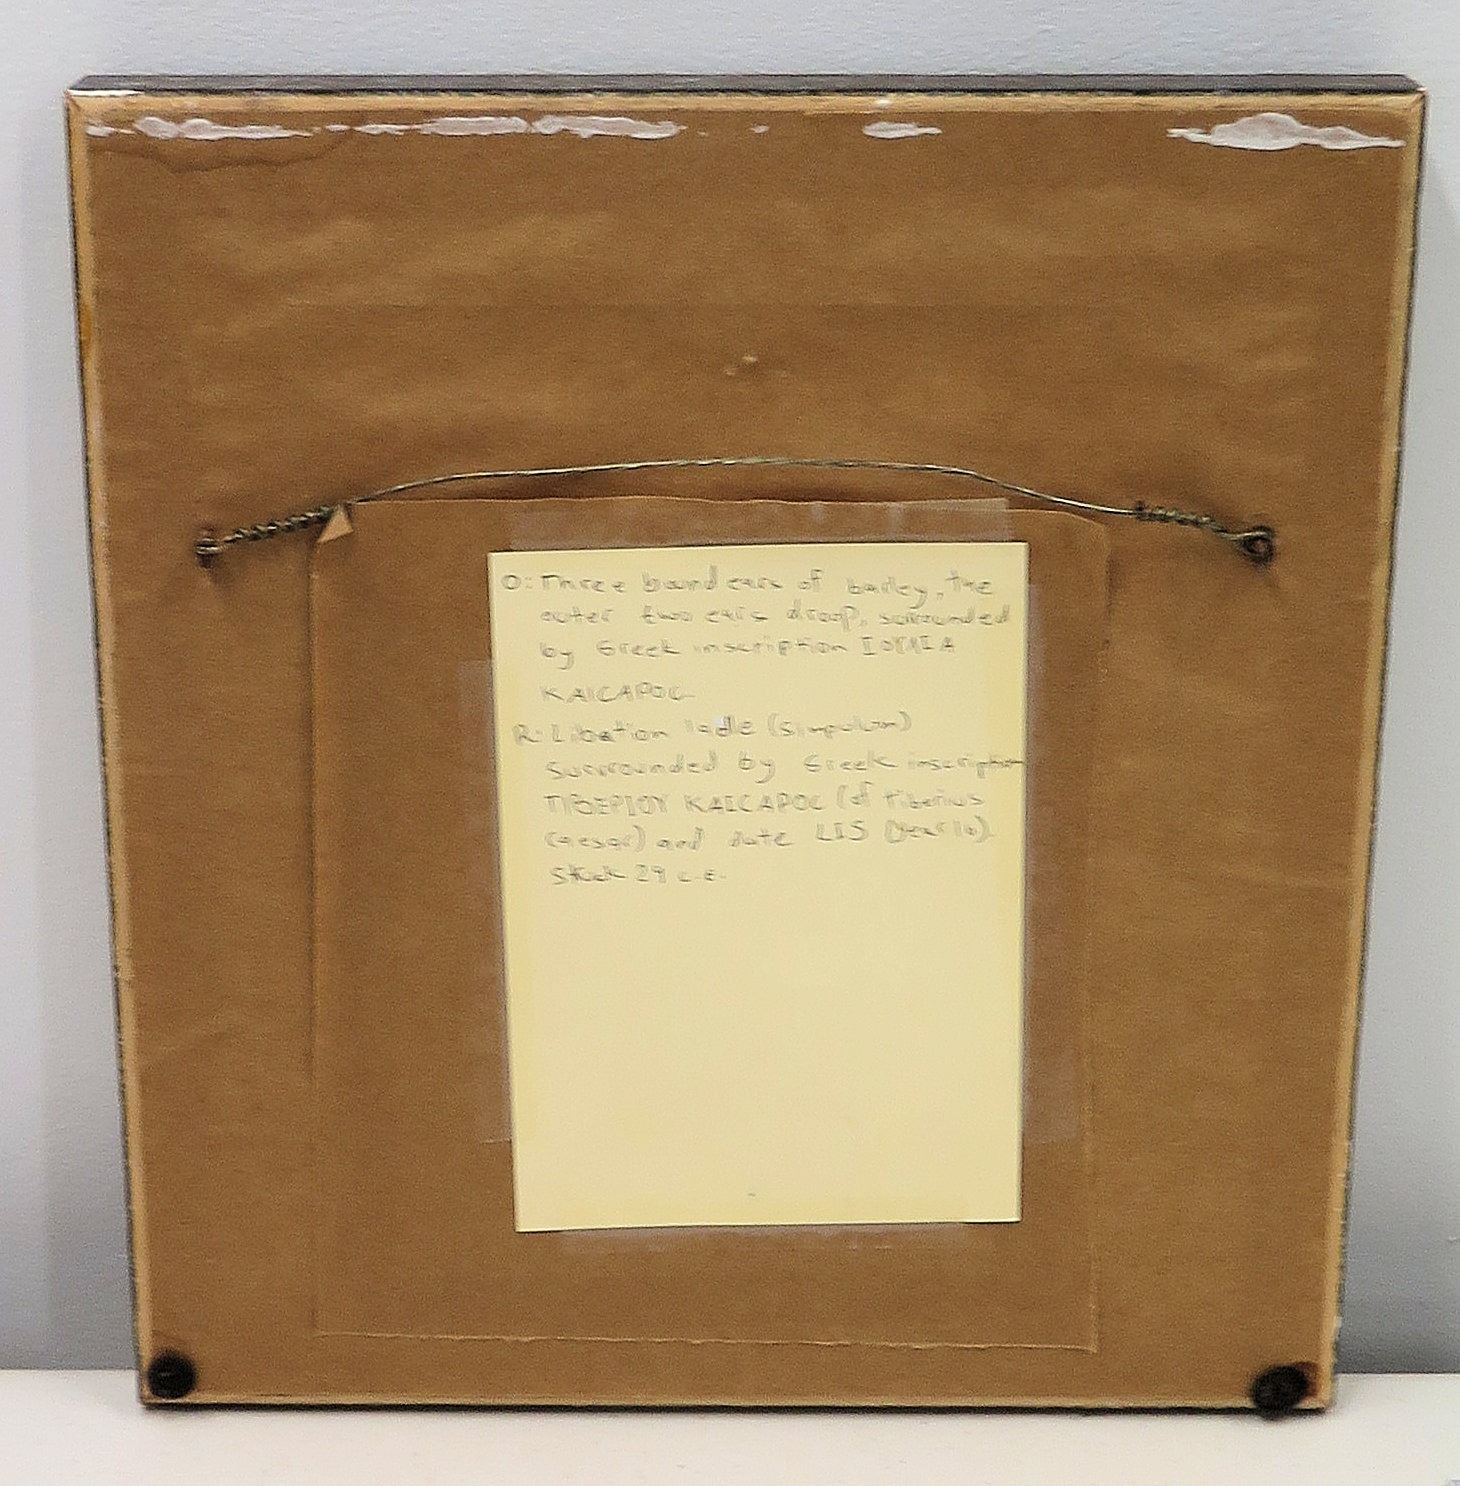 O: Three bound ears of barley, the
outer two ears droop, surrounded
by Greek inscription IOYΛIA
KAICAPOC
R: Libation ladle (simpulum)
surrounded by Greek inscription
TIBEPIOY KAICAPOC (of Tiberius
Caesar) and date LIS (year 16).
Struck 29 C.E.